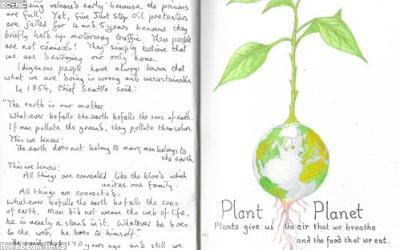 being released early because the prisons
are full! Yet, five Just Stop Oil protesters
are jailed for 4 and 5 years because they
briefly held up motorway traffic. These people
are not criminals! They simply believe that
we are destroying our only home.
Indigenous people have always known that
what we are doing is wrong and unsustainable.
In 1854, Chief Seattle said:
"The earth is our mother.
Whatever befalls the earth befalls the sons of earth.
If men pollute the ground, they pollute themselves.
This we know:
The earth does not belong to man; man belongs to
the earth.
This we know:
All things are connected like the blood which
unites one family.
All things are connected.
Whatever befalls the earth befalls the sons
of earth. Man did not weave the web of life,
he is merely a strand in it. Whatever he does
to the web, he does to himself."
170 years ago and still we
Plant Planet
Plants give us the air that we breathe
and the food that we eat.